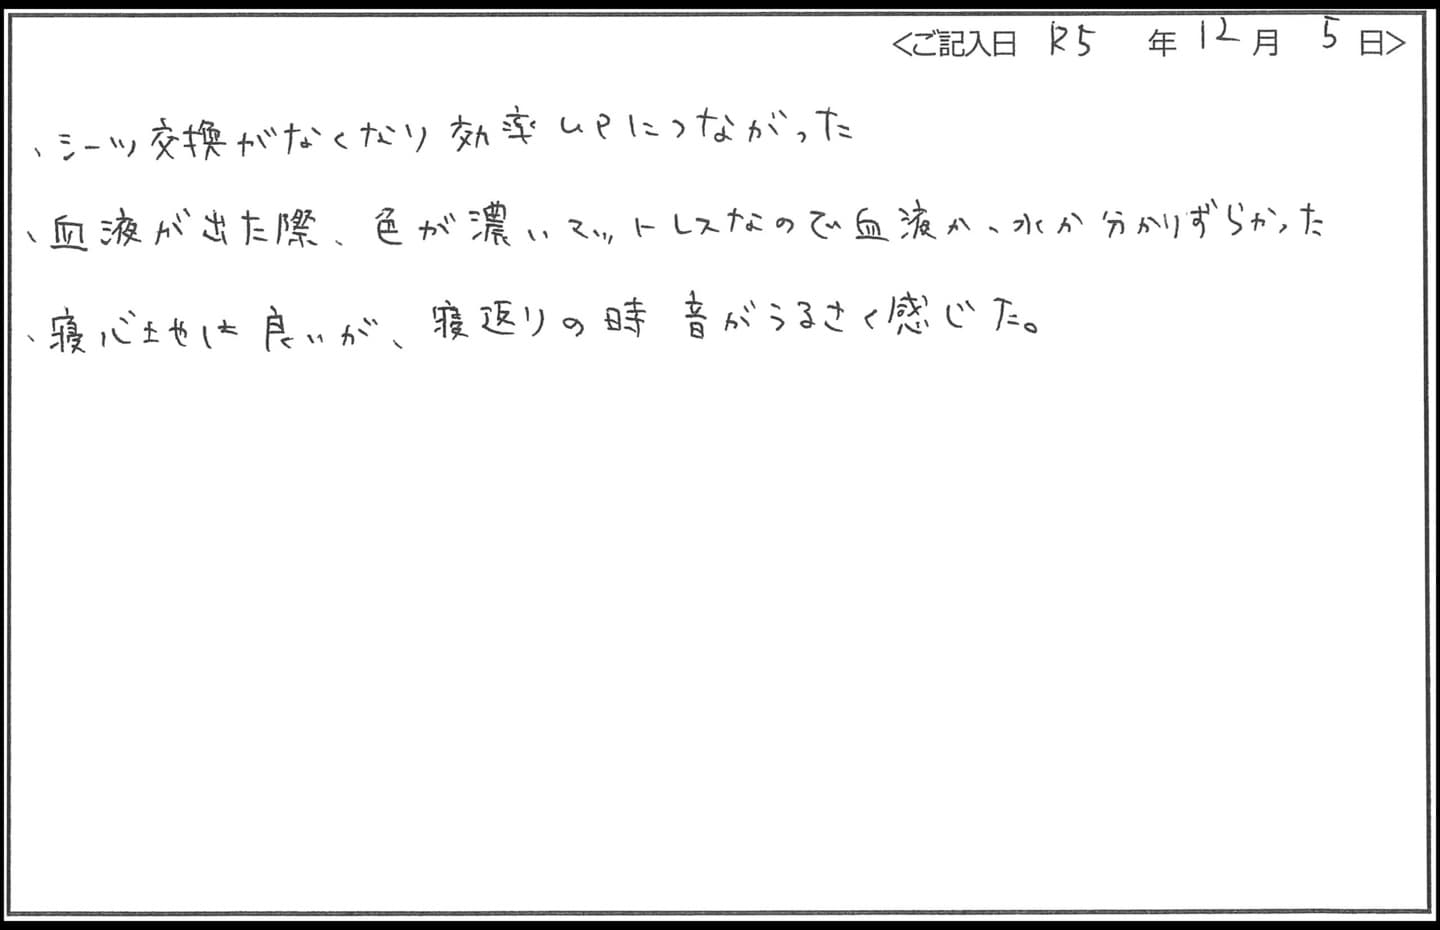 <ご記入日 R5 年 12 月 5 日>
、シーツ交換がなくなり効率UPにつながった
、血液が出た際、色が濃いマットレスなので血液か、水か分かりずらかった
、寝心地は良いが、寝返りの時音がうるさく感じた。